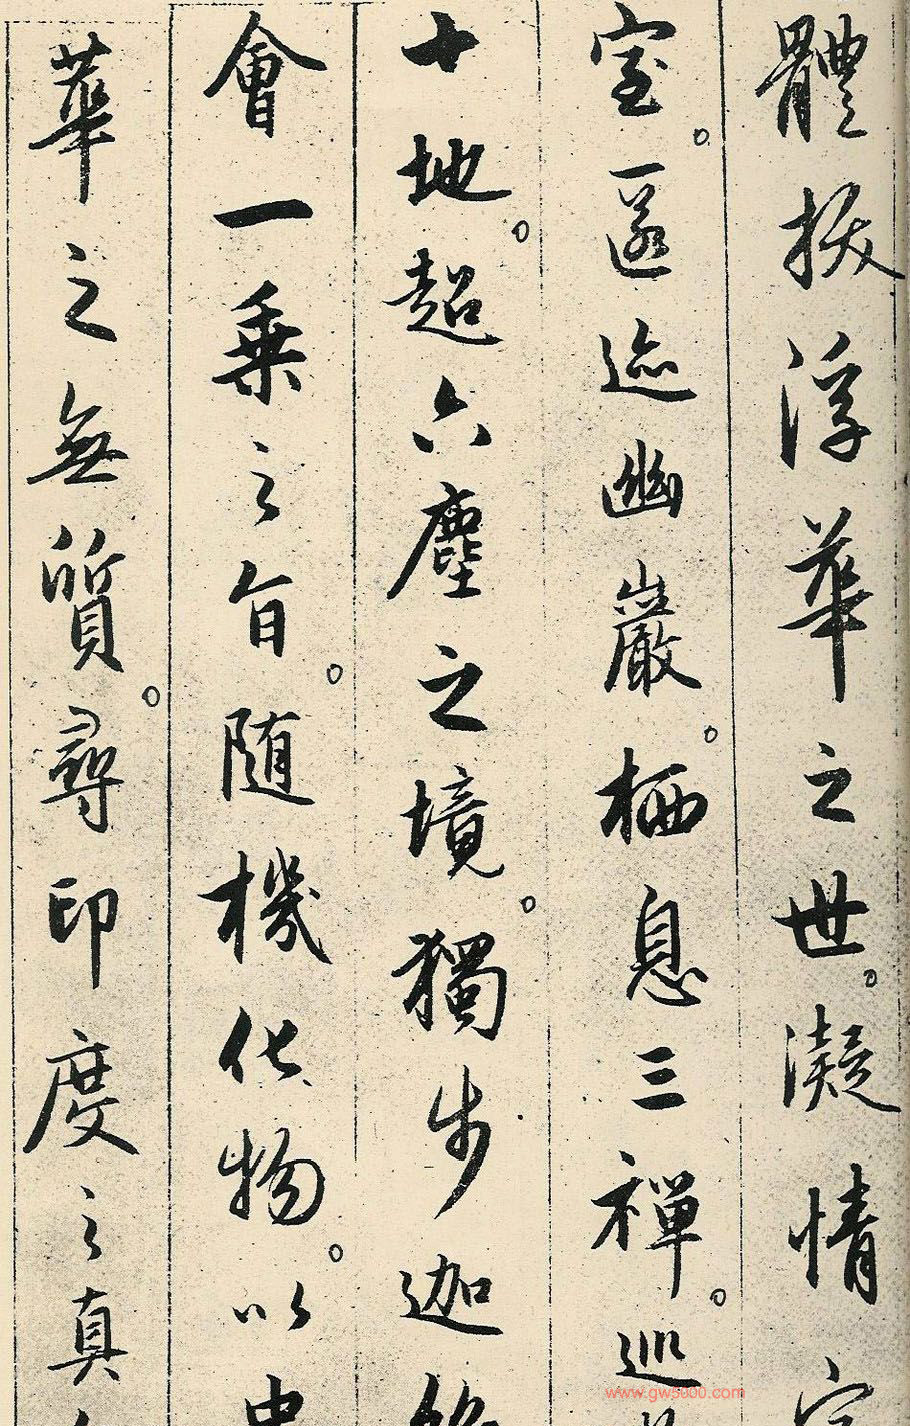 體拔浮華之世。凝情定
室。匿迹幽巖。栖息三禪。巡
十地。超六塵之境。獨步迦
會一乘之旨。随機化物。以中
華之無質。尋印度之真
www.gw5000.com